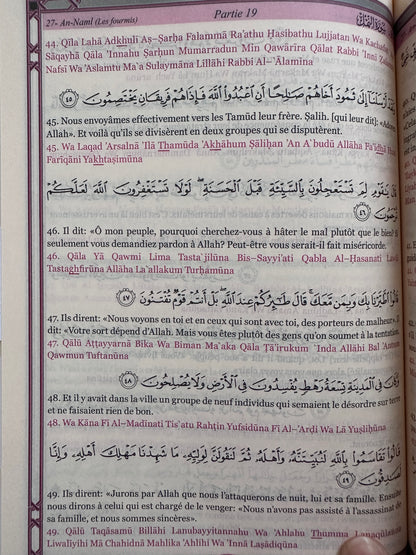 27- An-Naml (Les fourmis)
Partie 19
44. Qīla Lahā Adkhuli Aş-Şarĥa Falammā Ra'athu Ĥasibathu Lujjatan Wa Kachafat
Sāqayhā Qāla 'Innahu Şarĥun Mumarradun Min Qawārīra Qālat Rabbi 'Innī Žalamtu
Nafsī Wa 'Aslamtu Ma`a Sulaymāna Lillāhi Rabbi Al-`Ālamīna
أَرْسَلْنَا إِلَىٰ ثَمُودَ أَخَاهُمْ صَالِحًا أَنِ اعْبُدُوا اللَّهَ فَإِذَا هُمْ فَرِيقَانِ يَخْتَصِمُونَ ٤٥
45. Nous envoyâmes effectivement vers les Tamûd leur frère. Şalih. [qui leur dit]: «Adorez
Allah». Et voilà qu'ils se divisèrent en deux groupes qui se disputèrent.
45. Wa Laqad 'Arsalnā 'Ilá Thamūda 'Akhāhum Şāliĥan 'An A`budū Allāha Fa'idhā Hum
Farīqāni Yakhtaşimūna
قَالَ يَا قَوْمِ لِمَ تَسْتَعْجِلُونَ بِالسَّيِّئَةِ قَبْلَ الْحَسَنَةِ ۖ لَوْلَا تَسْتَغْفِرُونَ اللَّهَ لَعَلَّكُمْ
تُرْحَمُونَ ٤٦
46. Il dit: «Ô mon peuple, pourquoi cherchez-vous à hâter le mal plutôt que le bien? Si
seulement vous demandiez pardon à Allah? Peut-être vous serait-il fait miséricorde.
46. Qāla Yā Qawmi Lima Tasta`jilūna Bis-Sayyi'ati Qabla Al-Ĥasanati Lawlā
Tastaghfirūna Allāha La`allakum Turĥamūna
قَالُوا اطَّيَّرْنَا بِكَ وَبِمَن مَّعَكَ ۚ قَالَ طَائِرُكُمْ عِندَ اللَّهِ ۖ بَلْ أَنتُمْ قَوْمٌ تُفْتَنُونَ ٤٧
47. Ils dirent: «Nous voyons en toi et en ceux qui sont avec toi, des porteurs de malheur».
dit: «Votre sort dépend d'Allah. Mais vous êtes plutôt des gens qu'on soumet à la tentation.
47. Qālū Aţţayyarnā Bika Wa Biman Ma`aka Qāla Ţā'irukum `Inda Allāhi Bal 'Antum
Qawmun Tuftanūna
وَكَانَ فِي الْمَدِينَةِ تِسْعَةُ رَهْطٍ يُفْسِدُونَ فِي الْأَرْضِ وَلَا يُصْلِحُونَ ٤٨
48. Et il y avait dans la ville un groupe de neuf individus qui semaient le désordre sur terre
et ne faisaient rien de bon.
48. Wa Kāna Fī Al-Madīnati Tis`atu Rahţin Yufsidūna Fī Al-'Arđi Wa Lā Yuşliĥūna
قَالُوا تَقَاسَمُوا بِاللَّهِ لَنُبَيِّتَنَّهُ وَأَهْلَهُ ثُمَّ لَنَقُولَنَّ لِوَلِيِّهِ مَا شَهِدْنَا مَهْلِكَ أَهْلِهِ وَإِنَّا
لَصَادِقُونَ ٤٩
49. Ils dirent: «Jurons par Allah que nous l'attaquerons de nuit, lui et sa famille. Ensuite
nous dirons à celui qui est chargé de le venger: «Nous n'avons pas assisté à l'assassinat de
sa famille, et nous sommes sincères».
49. Qālū Taqāsamū Billāhi Lanubayyitannahu Wa 'Ahlahu Thumma Lanaqūlanna
Liwalīyihi Mā Chahidnā Mahlika 'Ahlihi Wa 'Innā Laşādiqūna